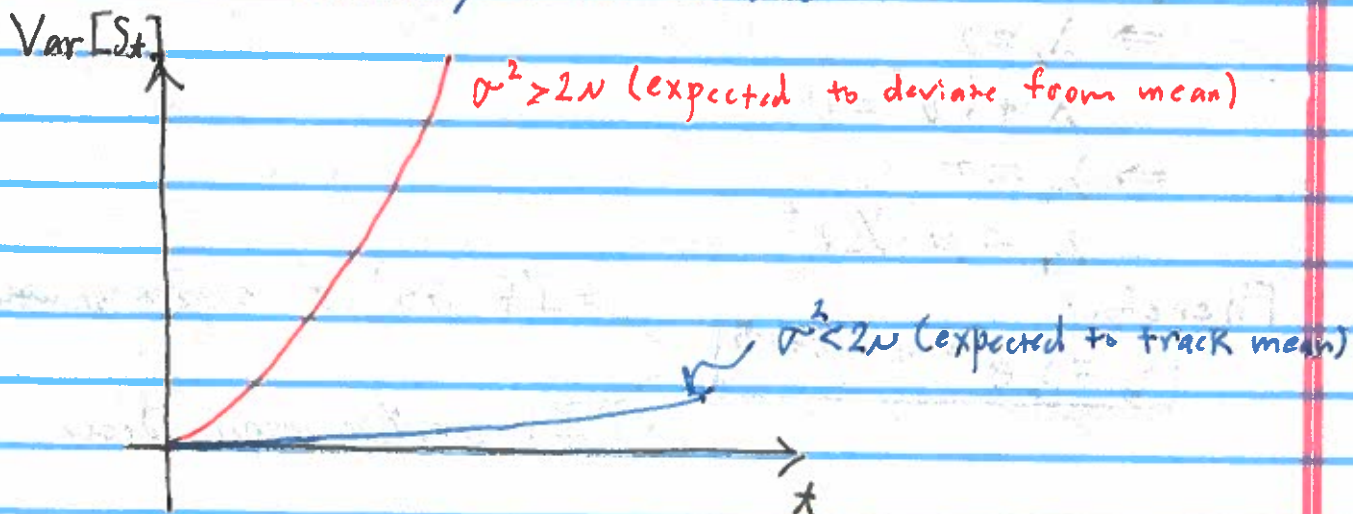 Var[St]
σ² > 2μ (expected to deviate from mean)
σ² < 2μ (expected to track mean)
t